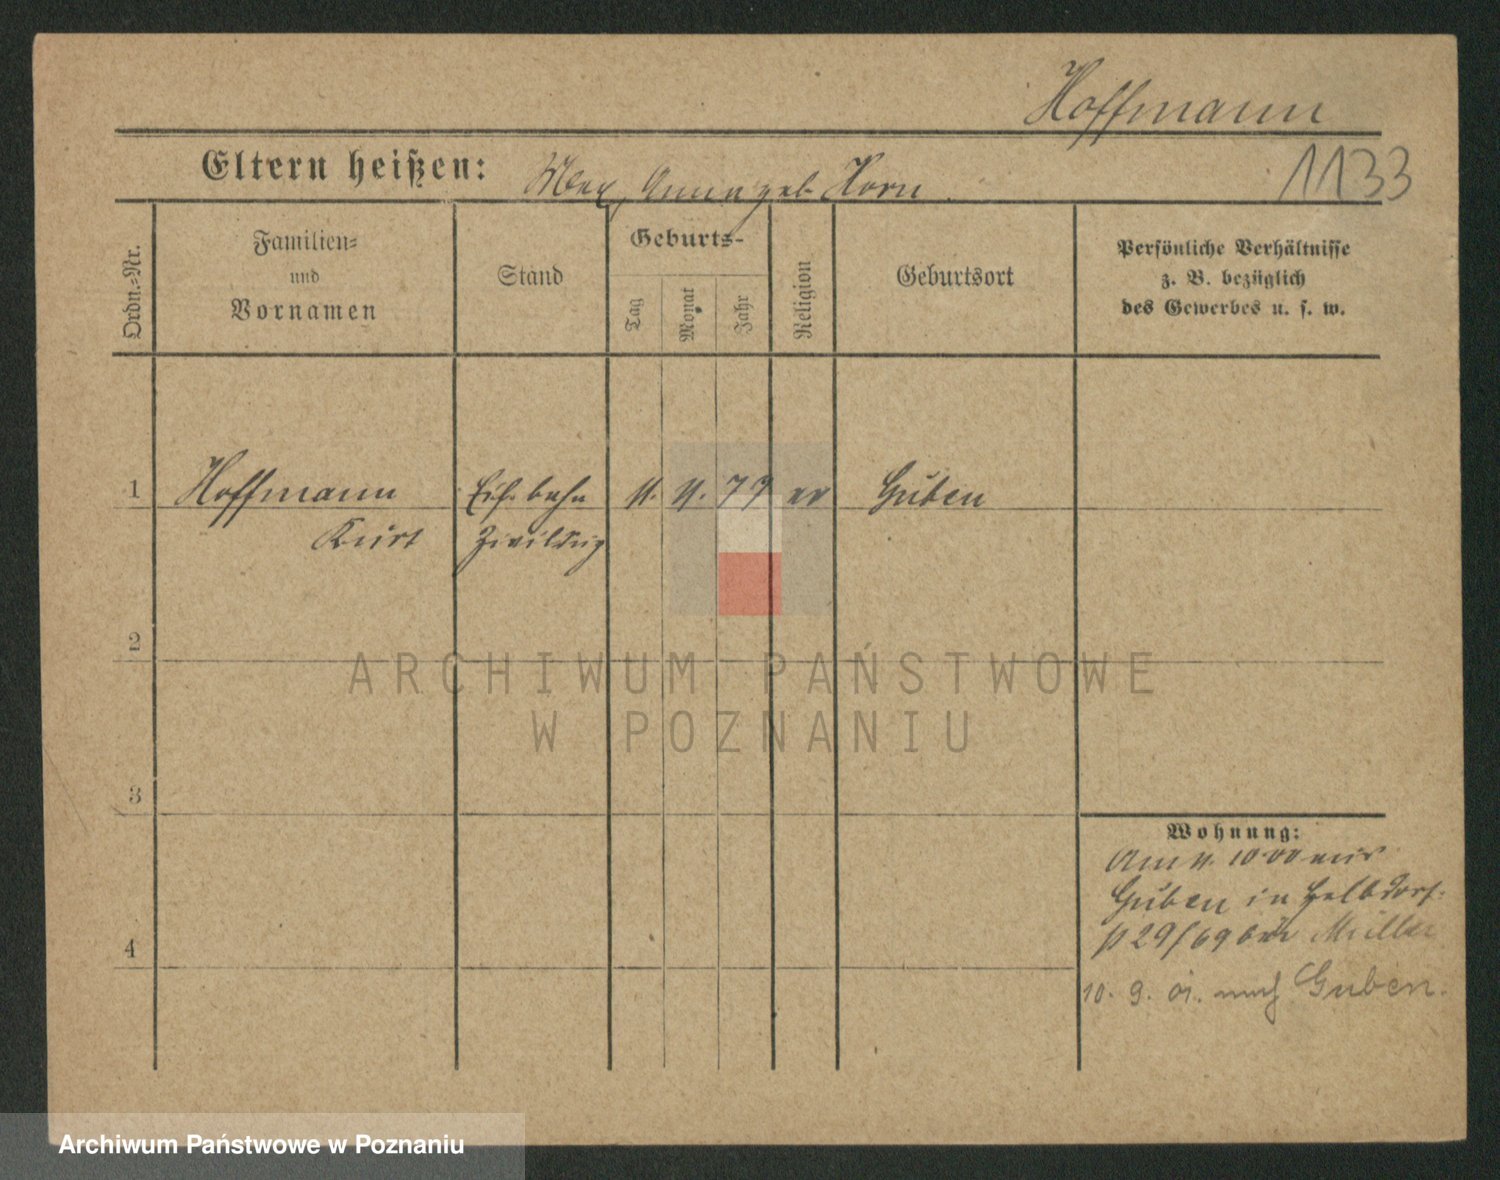 Hoffmann
Eltern heißen: Max, Anna geb Horn
1133
Ordn.-Nr.
Familien-
und
Vornamen
Stand
Geburts-
Tag
Monat
Jahr
Religion
Geburtsort
Persönliche Verhältnisse
z. B. bezüglich
des Gewerbes u. s. w.
1 Hoffmann Eisenbahn 11. 11. 79 ev Guben
Kurt Zivilsup
2
ARCHIWUM PAŃSTWOWE
W POZNANIU
3
Wohnung:
Am 11. 10 00 aus
Guben in
29/69 bei Müller
4
10. 9. 01. nach Guben.
Archiwum Państwowe w Poznaniu